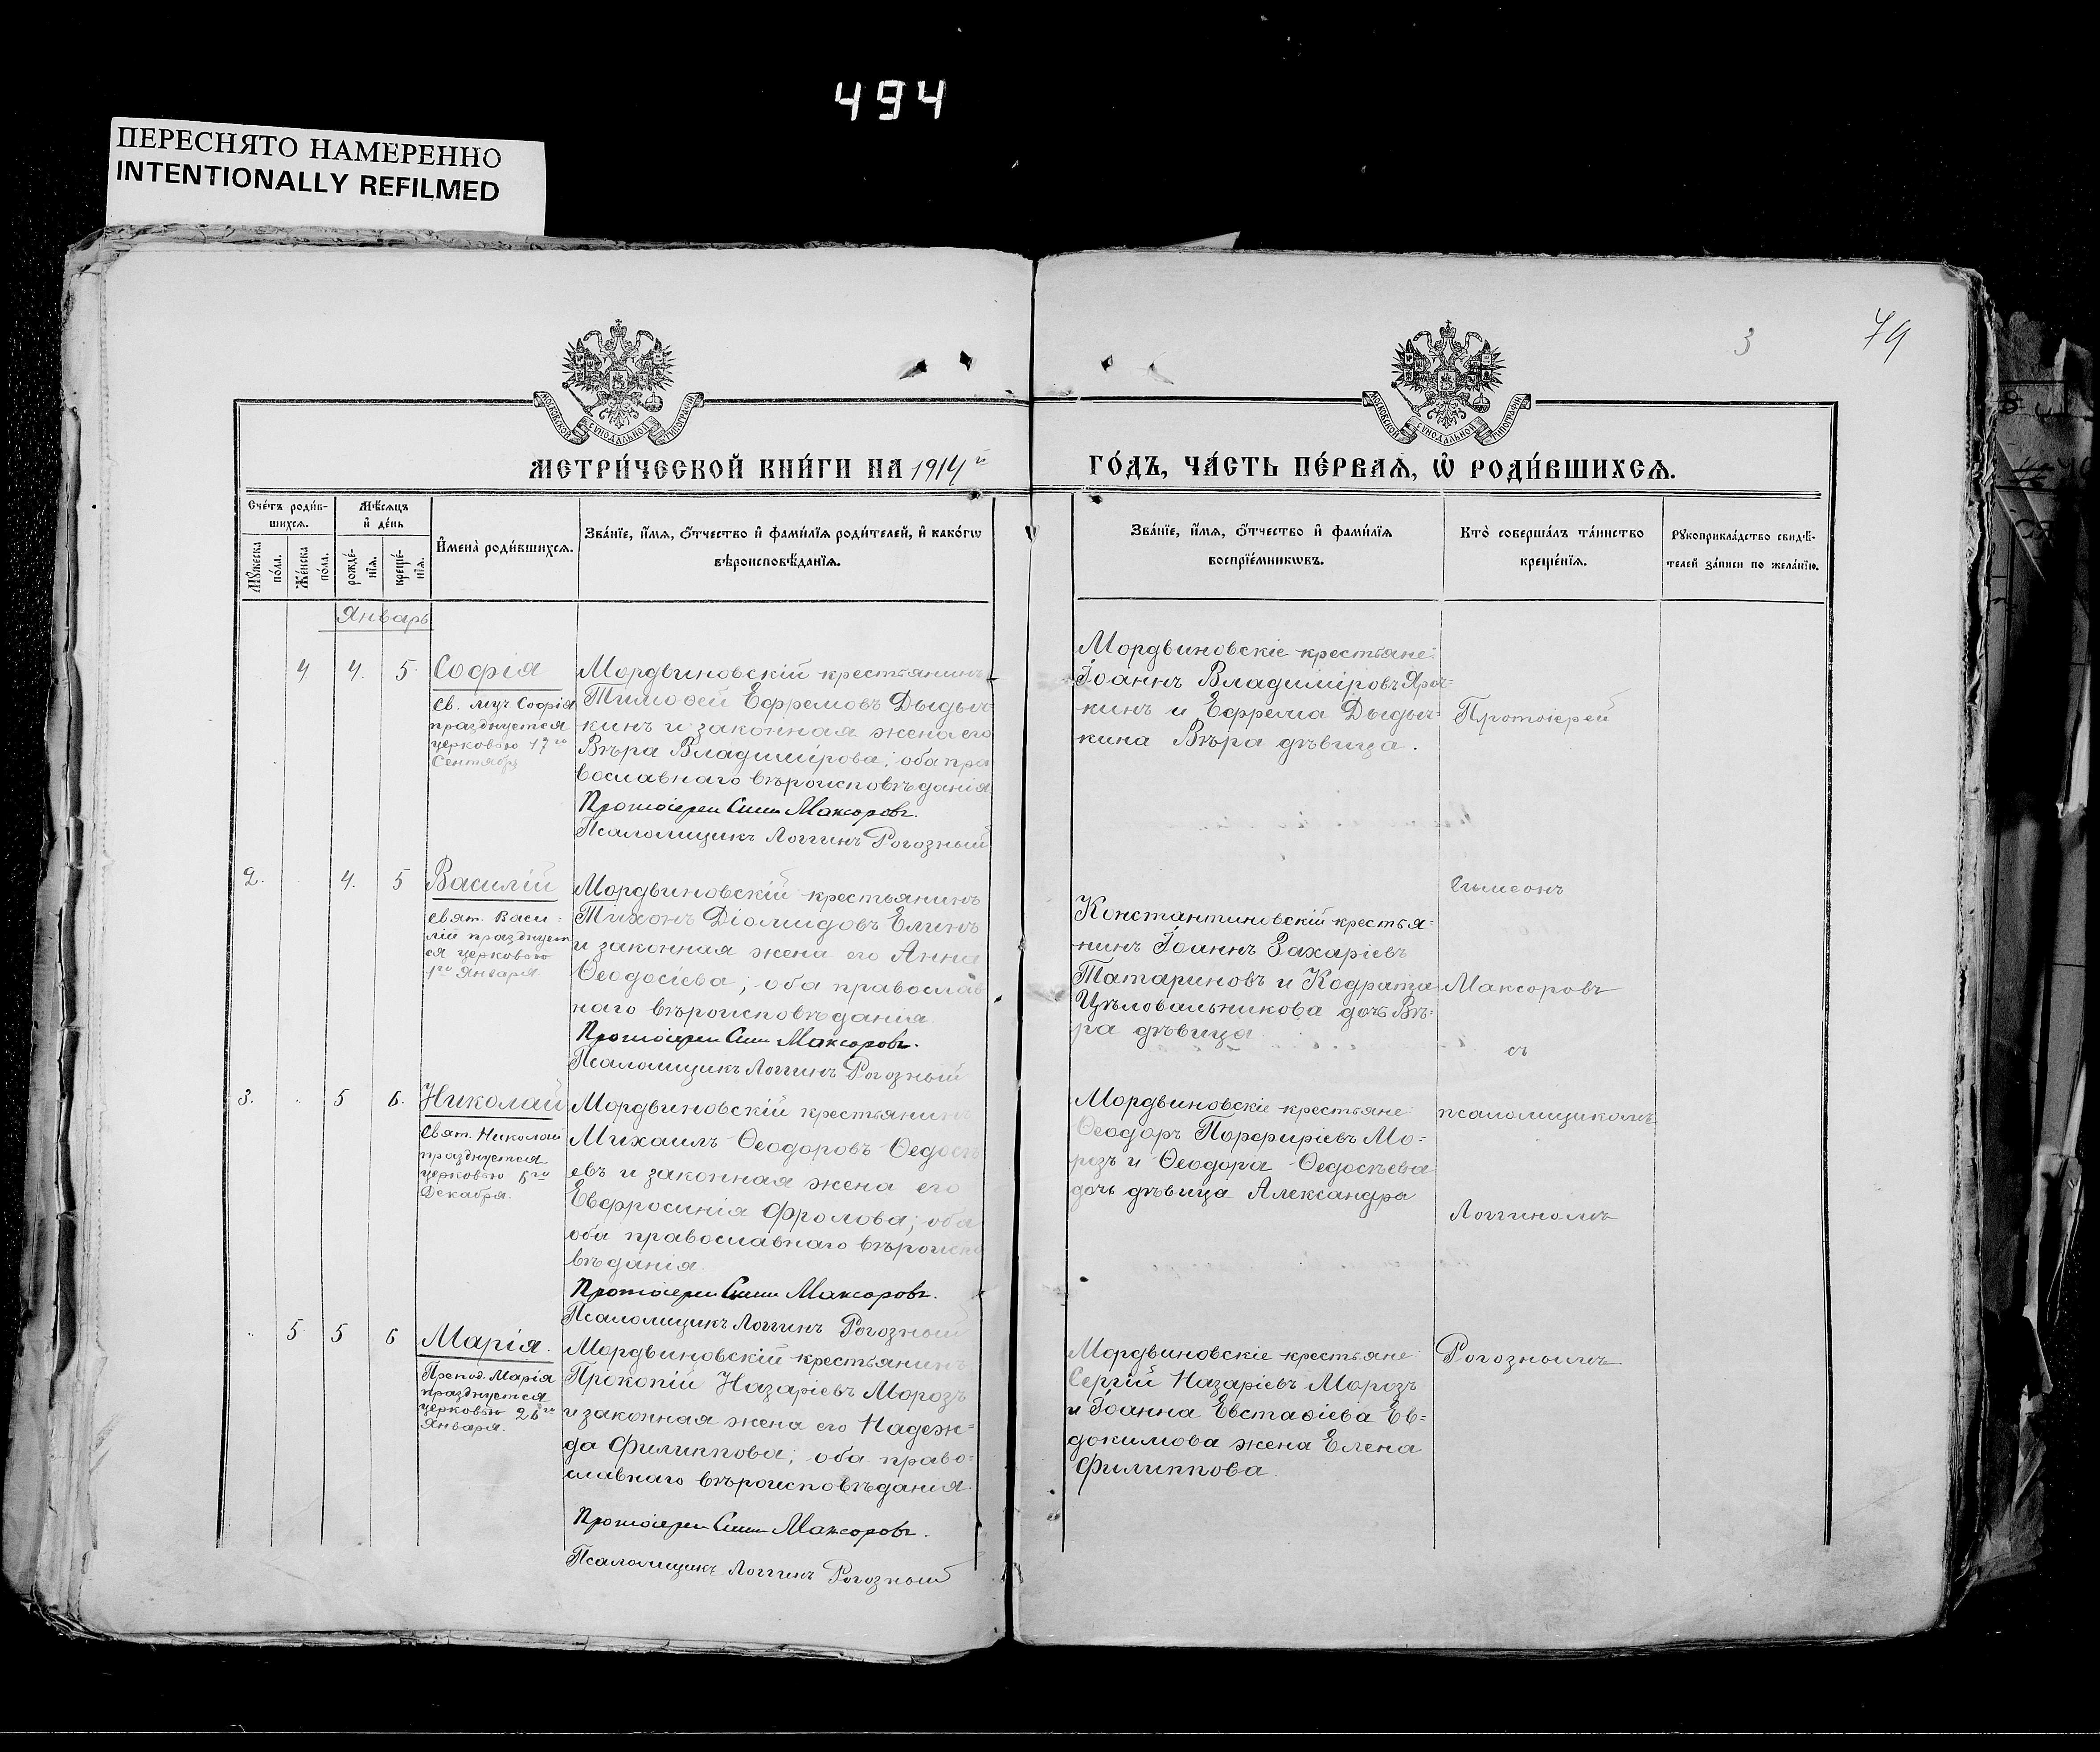 494
ПЕРЕСНЯТО НАМЕРЕННО
INTENTIONALLY REFILMED
3
79
МОСКОВСКОЙ СѴНОДАЛЬНОЙ ТИПОГРАФІИ
МОСКОВСКОЙ СѴНОДАЛЬНОЙ ТИПОГРАФІИ
МЕТРИ́ЧЕСКОЙ КНИ́ГИ НА 1914й
ГО́ДЪ, ЧА́СТЬ ПЕ́РВАѦ, Ѡ҆ РОДИ́ВШИХСѦ.
Сче́тъ роди́в-
шихсѧ.
Мѣ́сѧцъ
и҆ де́нь
Мꙋ́жеска
по́ла.
Же́нска
по́ла.
рожде́-
нїѧ.
креще́-
нїѧ.
И҆мена̀ роди́вшихсѧ.
Зва́нїе, и҆́мѧ, ѻ҆́тчество и҆ фами́лїѧ роди́телей, и҆ како́гѡ
вѣроисповѣ́данїѧ.
Зва́нїе, и҆́мѧ, ѻ҆́тчество и҆ фами́лїѧ
воспрїе́мникѡвъ.
Кто̀ соверша́лъ та́инство
креще́нїѧ.
Рꙋкоприкла́дство свидѣ́-
телей за́писи по жела́нїю.
Январь
4 4. 5. Софія
Св. муч Софія
празднуется
церковью 17го
Сентября
Мордвиновскій крестьянинъ
Тимоѳей Ефремовъ Дыдыч-
кинъ и законная жена его
Вѣра Владимірова; оба пра
вославнаго вѣроисповѣданія
Протоіерей Сим Максоровъ.
Псаломщикъ Логгинъ Рогозный
Мордвиновскіе крестьяне:
Іоаннъ Владиміровъ Яроч-
кинъ и Ефрема Дыдыч-
кина Вѣра дѣвица.
Протоіерей
2. 4. 5 Василій
Свят. Васи-
лій празднует
ся церковью
1го Января
Мордвиновскій крестьянинъ
Тихонъ Діомидовъ Елинъ
и законная жена его Анна
Ѳеодосіева; оба православ
наго вѣроисповѣданія
Протоіерей Сим Максоровъ.
Псаломщикъ Логгинъ Рогозный
Константиновскій крестья-
нинъ Іоаннъ Захаріевъ
Татариновъ и Кодрата
Цѣловальникова дочь Вѣ-
ра дѣвица
Сѵмеонъ
Максоровъ
съ
3. 5 6. Николай
Свят. Николай
празднуется
церковью 6го
Декабря.
Мордвиновскій крестьянинъ
Михаилъ Ѳеодоровъ Ѳедосѣ
евъ и законная жена его
Евфросинія Фролова; оба
оба православнаго вѣроиспо
вѣданія.
Протоіерей Сим Максоровъ.
Псаломщикъ Логгинъ Рогозный
Мордвиновскіе крестьяне
Ѳеодоръ Порфиріевъ Мо-
розъ и Ѳеодора Ѳедосѣева
дочь дѣвица Александра
псаломщикомъ
Логгиномъ
5 5 6 Марія.
Препод. Марія
празднуется
церковью 26го
Января.
Мордвиновскій крестьянинъ
Прокопій Назаріевъ Морозъ
и законная жена его Надеж-
да Филиппова; оба право-
славнаго вѣроисповѣданія.
Протоіерей Сим Максоровъ.
Псаломщикъ Логгинъ Рогозный
Мордвиновскіе крестьяне
Сергій Назаріевъ Морозъ
и Іоанна Евстаѳіева Ев-
докимова жена Елена
Филиппова.
Рогознымъ